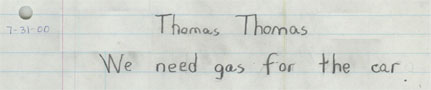 Thomas Thomas
7-31-00
We need gas for the car.